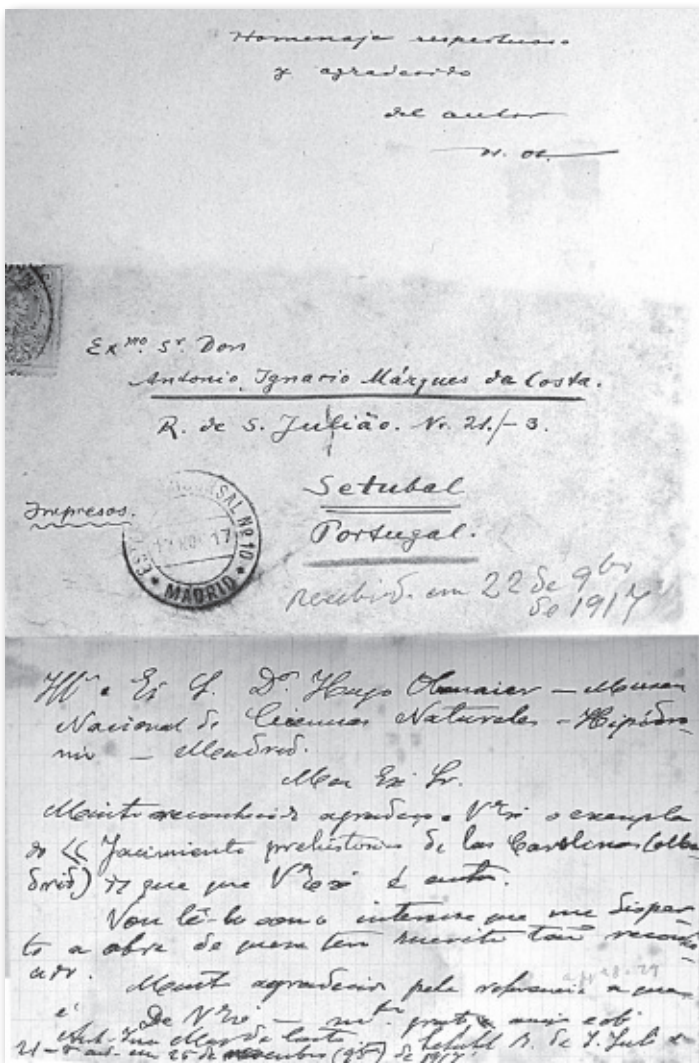 Homenaje respetuoso
y agradecido
del autor
Exmo. Sr Don
Antonio Ignacio Márques da Costa.
R. de S. Julião. Nr. 21./-3.
Impresos.
Setubal
Portugal.
SUCURSAL Nº 10
17
MADRID
recebido em 22 de 9bro
de 1917
Dr Hugo Obermaier - Museo
Nacional de Ciencias Naturales - Hipódro-
mo - Madrid.
Meu Ex Sr.
Muito reconhecido agradeço a V Ex o exemplar
do « Yacimiento prehistorico de las Carolinas (Ma-
drid) de que V Ex é autor.
Vou lê-lo com o interesse que me disper-
ta a obra de quem tem merito tão reconhe-
cido.
Muito agradecido pela referencia a
De V Ex
Marques da Costa Setubal R. de S. Julião
21 - em 25 de novembro (9bro) de 1917